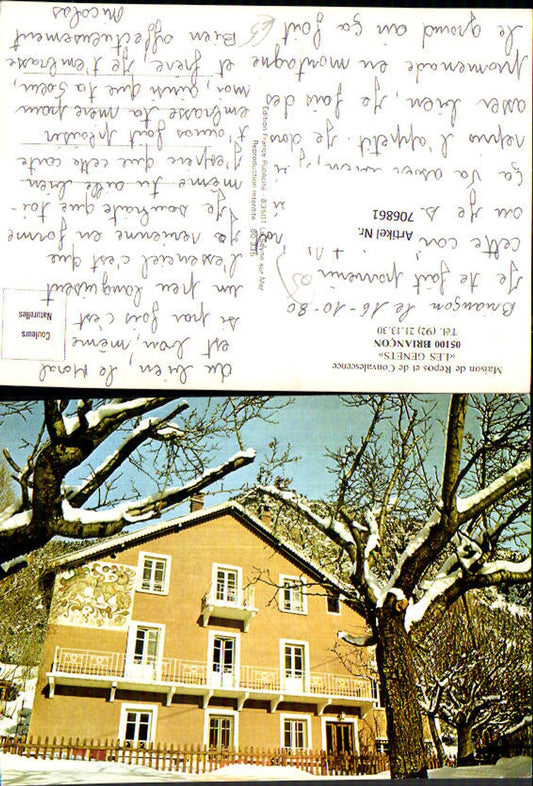 Maison de Repos et de Convalescence
«LES GENETS»
05100 BRIANÇON
Tél. (92) 21.13.30
Briançon le 16-10-80
Je te fait parvenir
cette car
ou je s
ça va assez bien, j'
repris l'appetit. Je dors
assez bien, je fais des
promenade en montagne
le grand air ça fait
du bien, le Moral
est bon, même
si par fois c'est
un peu languisent
l'essenciel c'est que
je revienne en forme
Je souhaite que toi-
même tu aille bien
J'espère que cette carte
t'auras fait plaisir
embrasse ta mère pour
moi, ainsi que ta Soeur,
et frere, Je t'embrasse
Bien affectueusement
Nicolas
Artikel Nr.
706861
Edition France Publicité - 83501 La Seyne sur Mer
Reproduction interdite
Couleurs
Naturelles